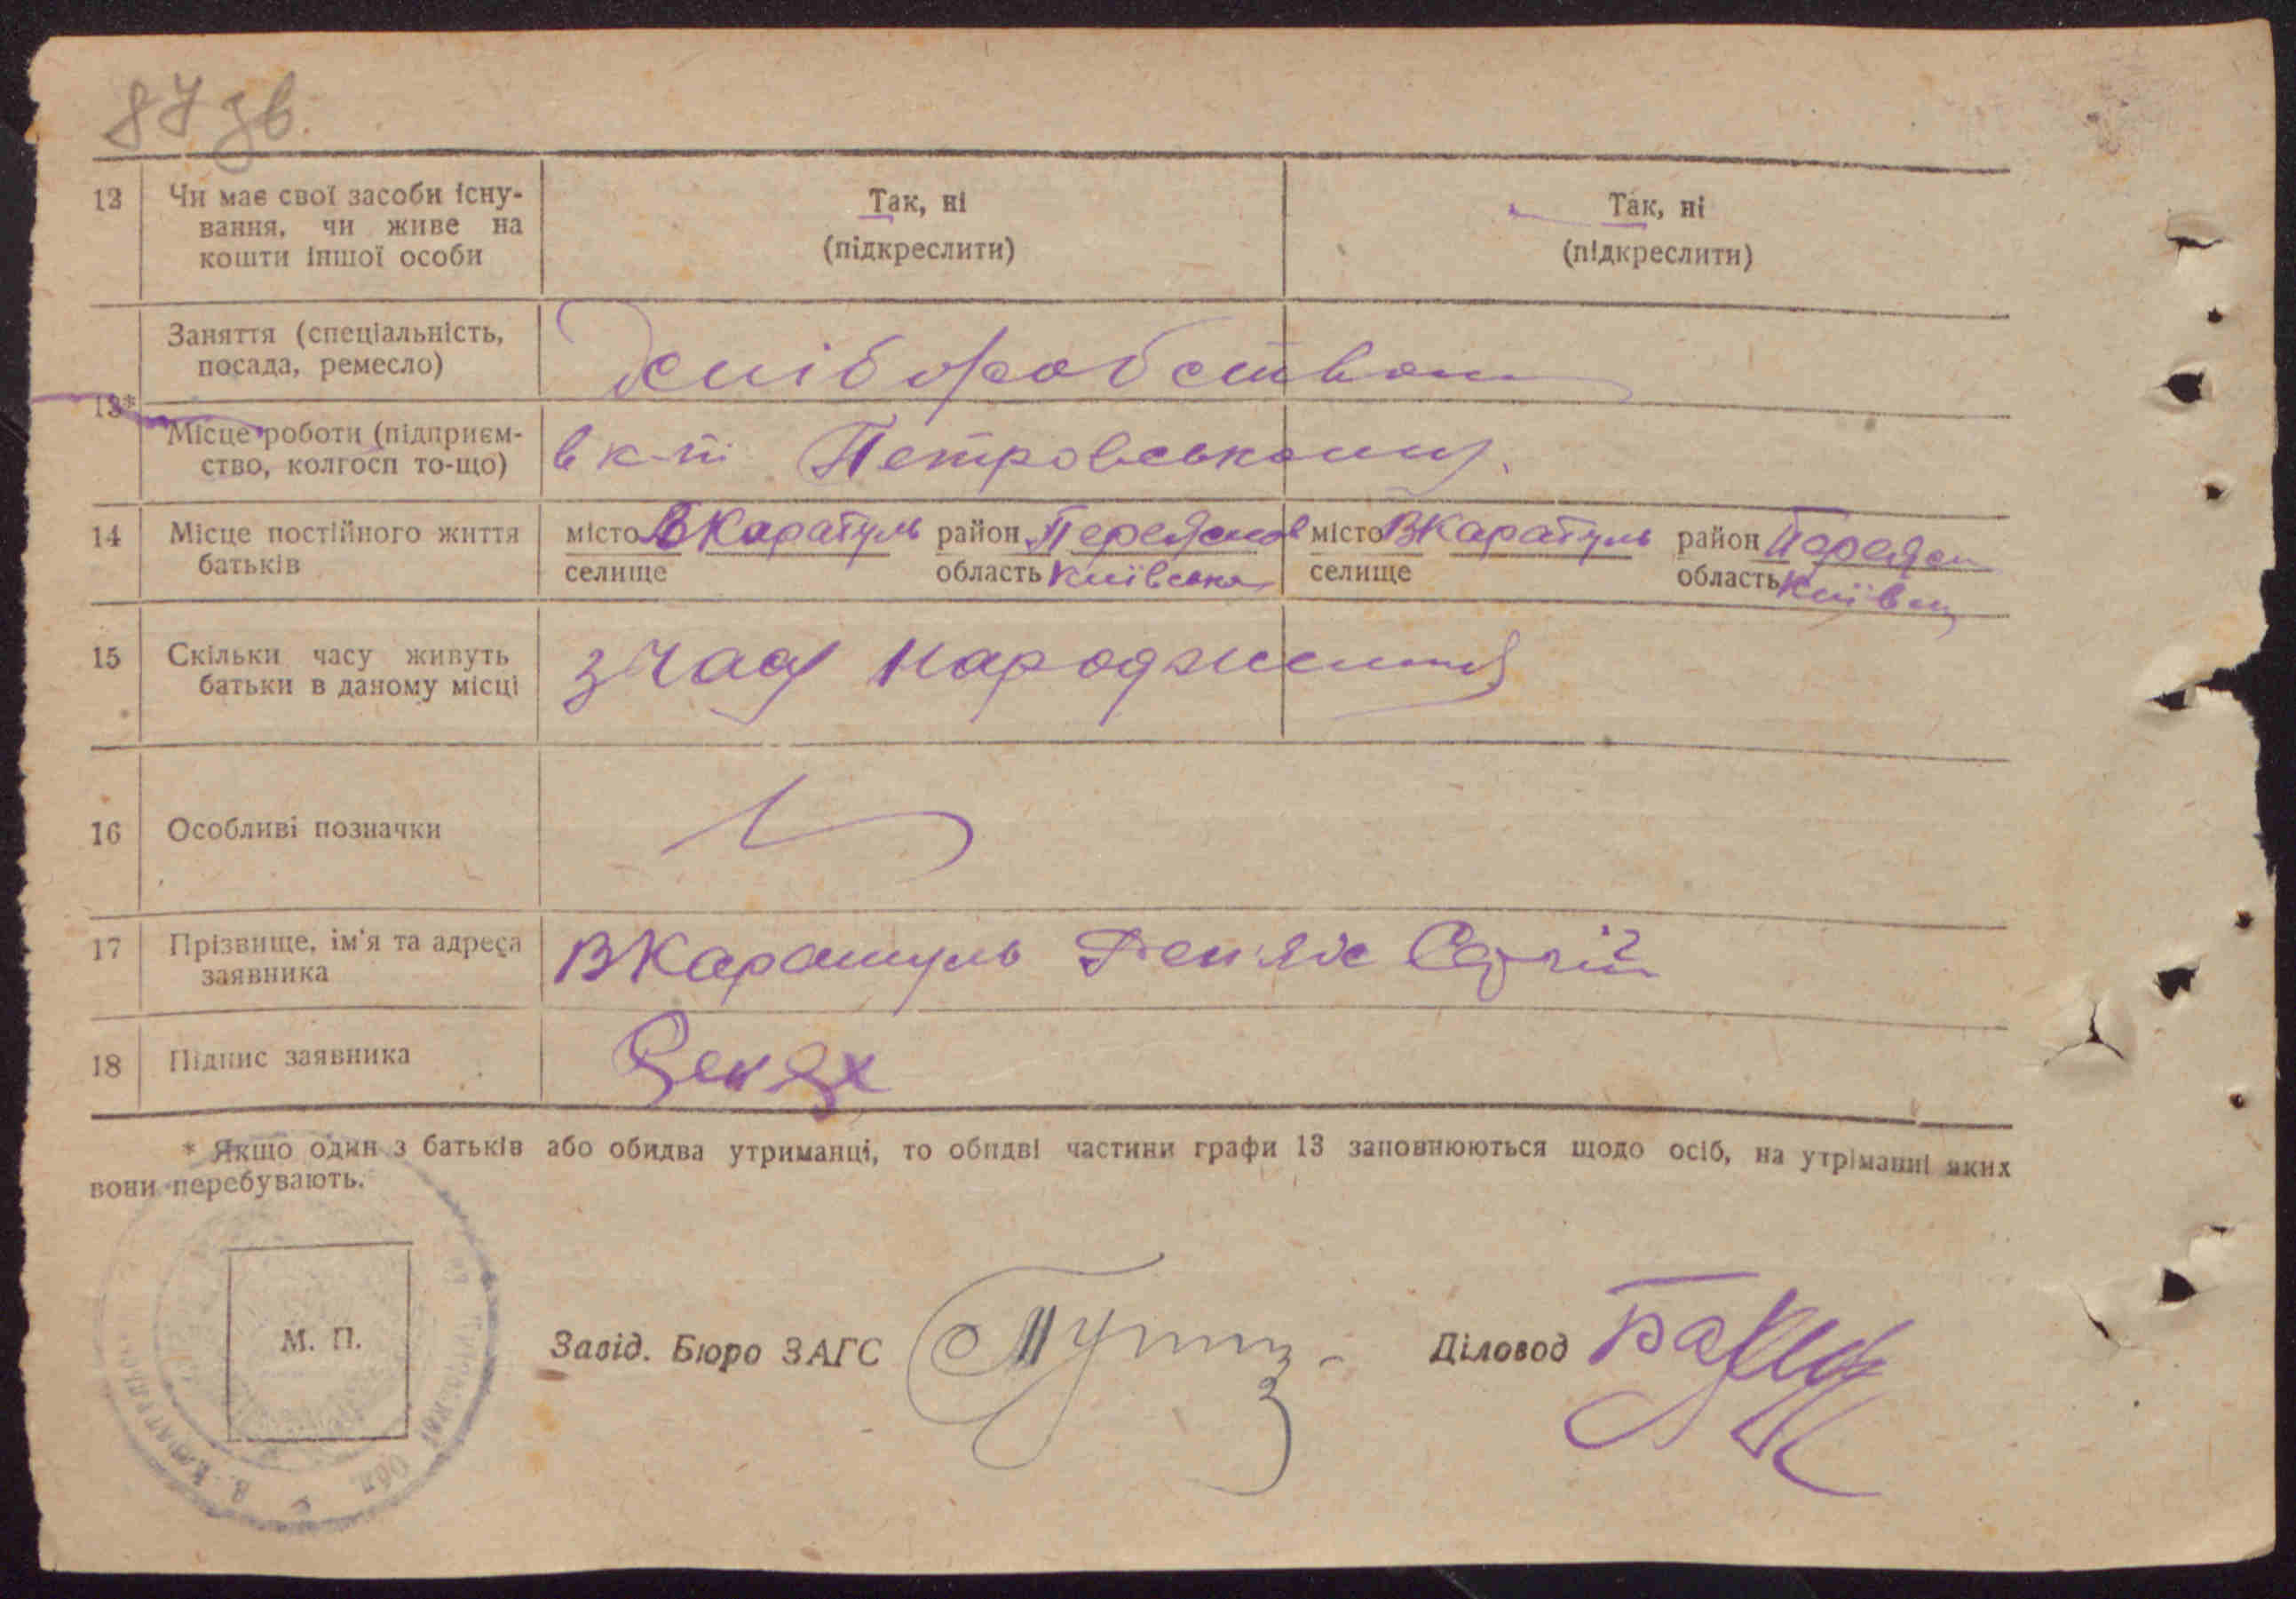 87 зв.
12 Чи має свої засоби існу-
вання, чи живе на
кошти іншої особи
Так, ні
(підкреслити)
Так, ні
(підкреслити)
13*
Заняття (спеціальність,
посада, ремесло)
хліборобством
Місце роботи (підприєм-
ство, колгосп то-що)
в к-пі Петровському.
14 Місце постійного життя
батьків
місто ВКаратуль район Переяслов
селище область Київська
місто ВКаратуль район Переясл
селище область Київськ
15 Скільки часу живуть
батьки в даному місці
з часу народження
16 Особливі позначки
17 Прізвище, ім'я та адреса
заявника
ВКаратуль Деньях Сергій
18 Підпис заявника
* Якщо один з батьків або обидва утриманці, то обидві частини графи 13 заповнюються щодо осіб, на утріманні яких
вони перебувають.
М. П.
Завід. Бюро ЗАГС
Діловод